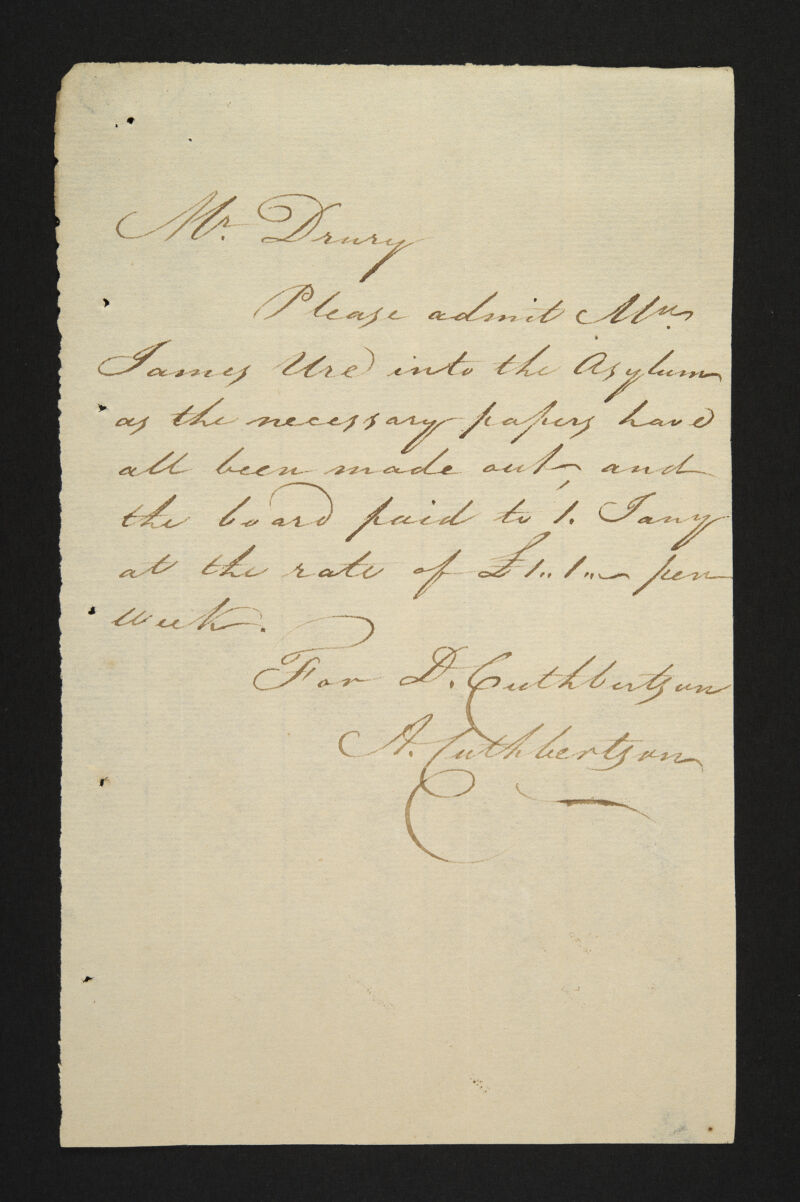 Mr. Drury
Please admit Mr.
James Ure into the Asylum
as the necessary papers have
all been made out, and
the board paid to 1. Jany
at the rate of £1..1..– per
week.
For D. Cuthbertson
A. Cuthbertson